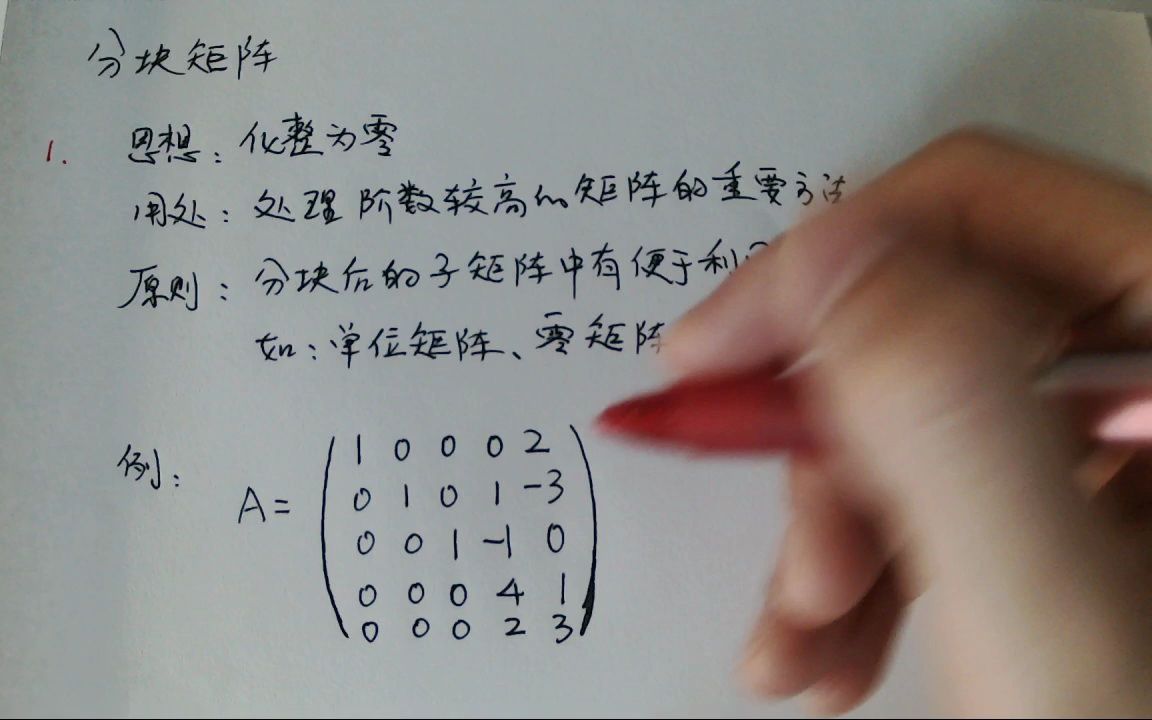 分块矩阵
1. 思想：化整为零
用处：处理阶数较高的矩阵的重要方法
原则：分块后的子矩阵中有便于利
如：单位矩阵、零矩阵
例：
1 0 0 0 2
0 1 0 1 -3
A= 0 0 1 -1 0
0 0 0 4 1
0 0 0 2 3